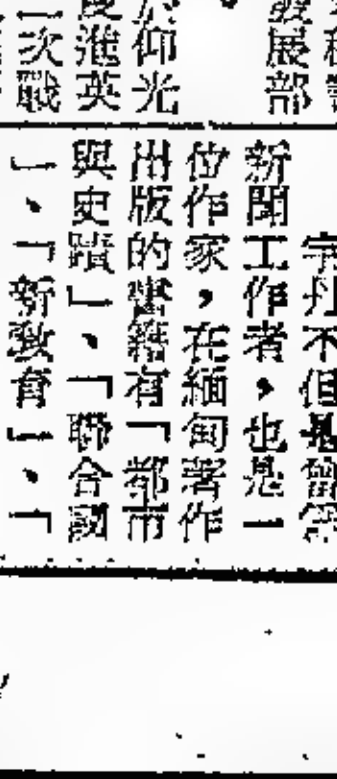 發展部
於仰光
度進英
二次戰
宇丹不但是
新聞工作者，也是一
位作家，在緬甸著作
出版的書籍有「都市
與史蹟」、「聯合國
」、「新教育」、「